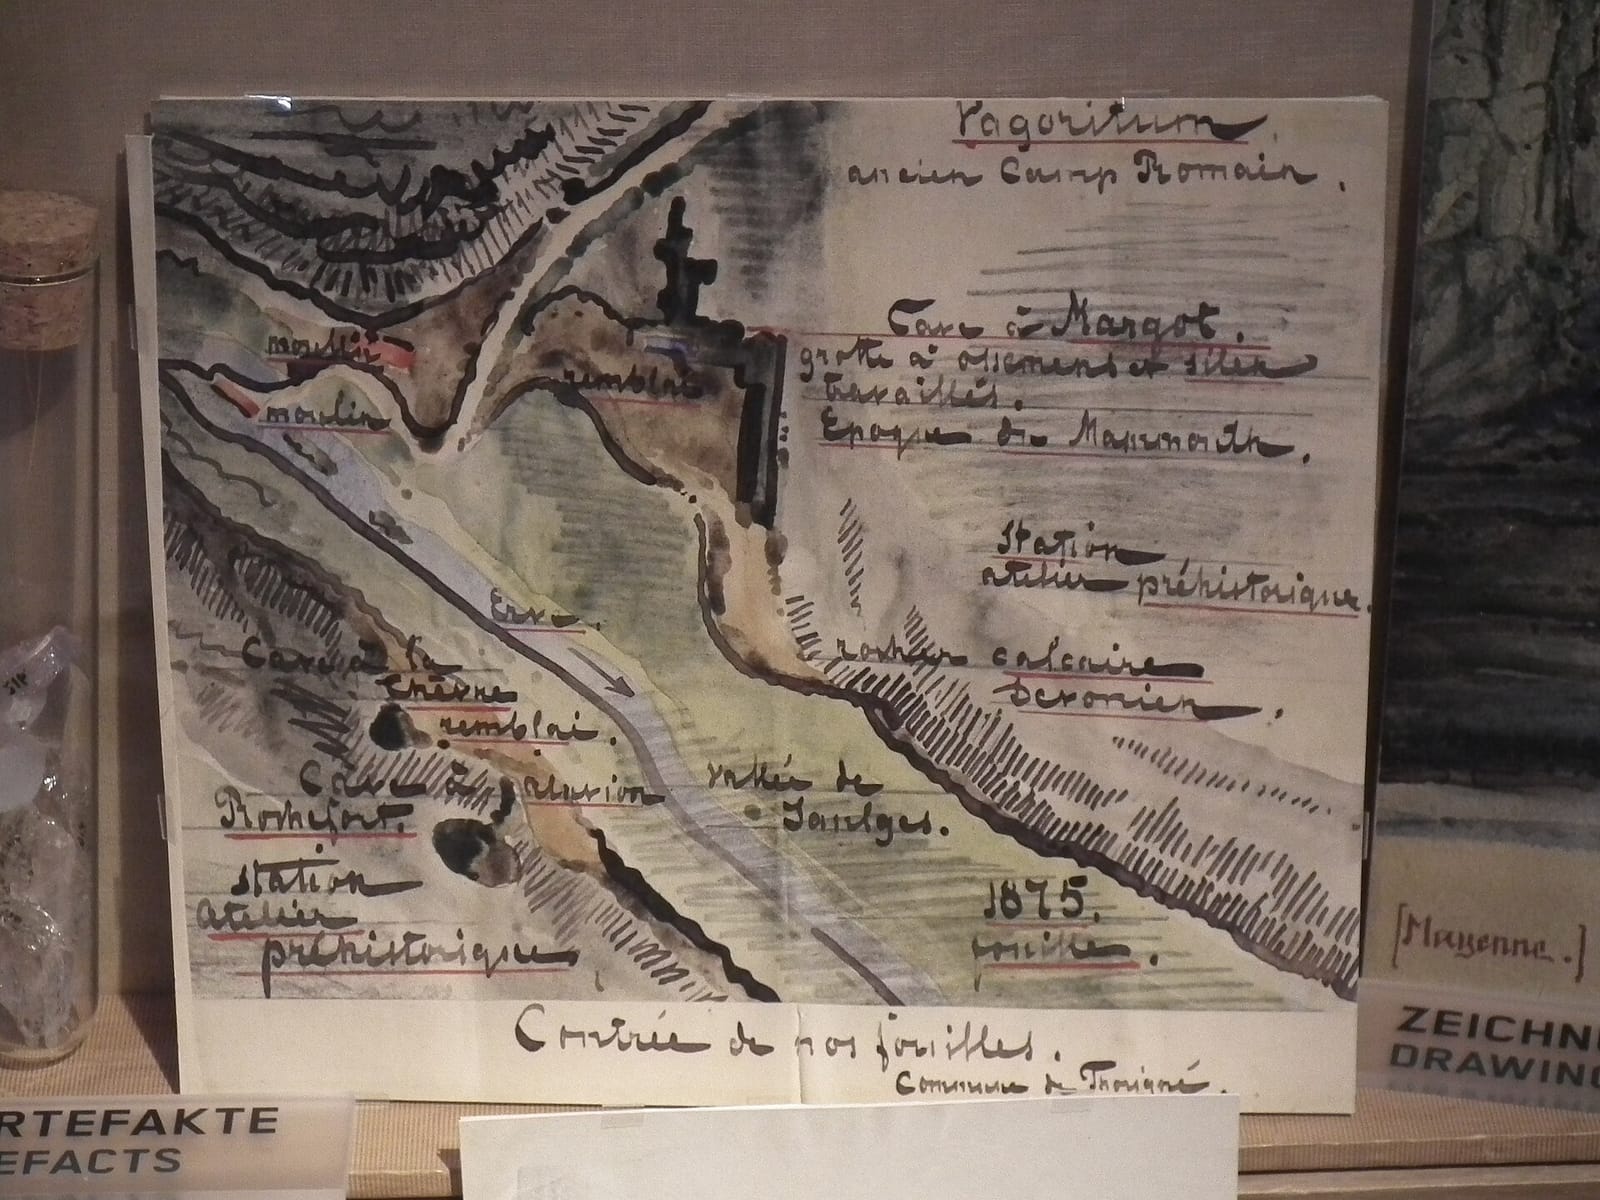 Vagoritum.
ancien Camp Romain.
Cave à Margot.
grotte à ossements et silex
travaillés.
Epoque du Mammouth.
moulin
moulin
remblai
Station
atelier préhistorique.
Erve.
rocher calcaire
Devonien.
Cave à la
Chèvre
remblai.
Cave à
Rochefort.
station
atelier
préhistorique
vallée de
Saulges.
1875.
fouilles.
Contrée de nos fouilles.
Commune de Thorigné.
[Mayenne.]
ZEICHN
DRAWING
RTEFAKTE
EFACTS